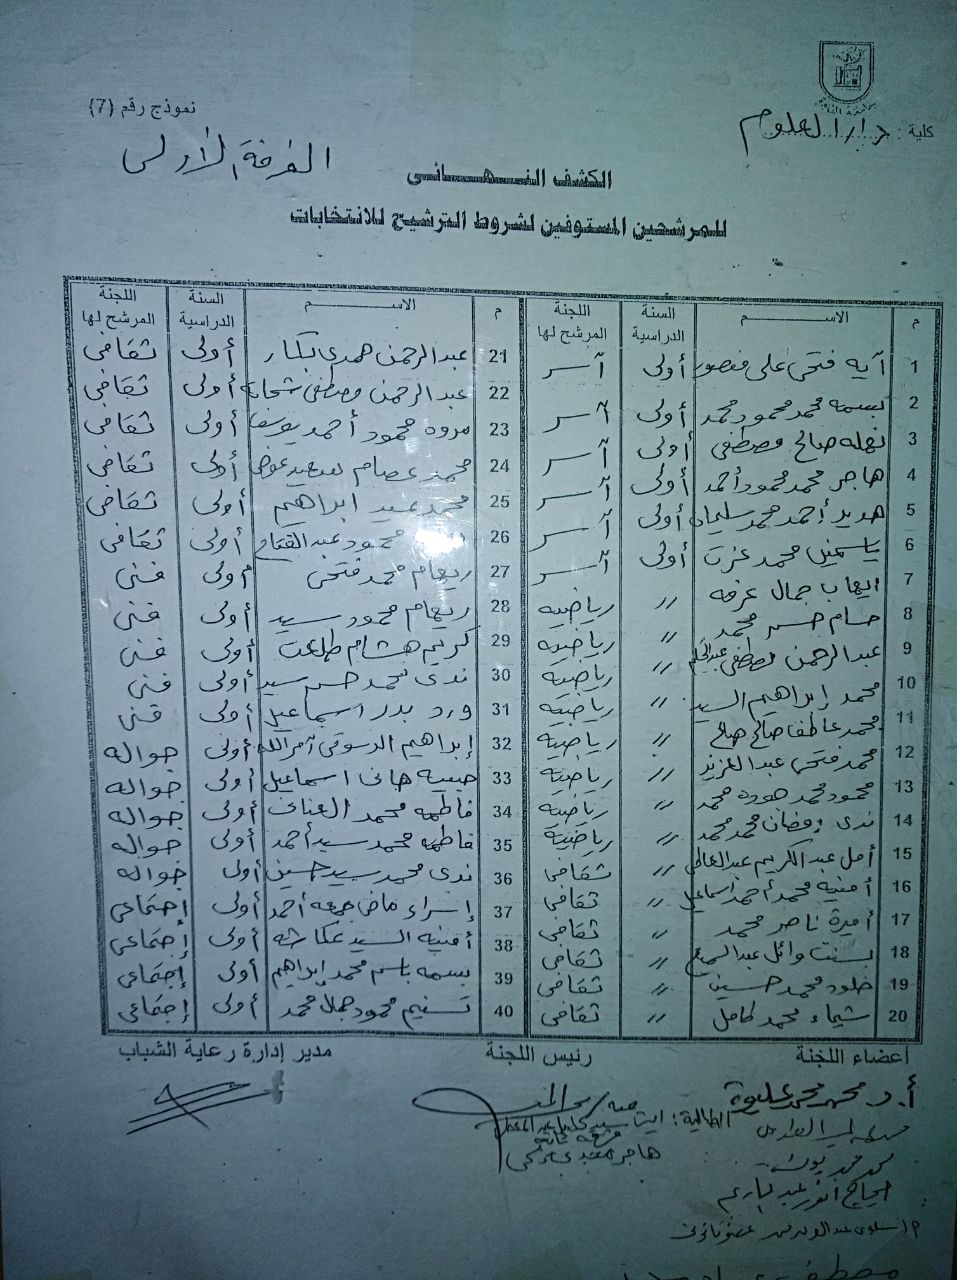 كلية : دار العلوم
نموذج رقم (7)
الفرقة الأولى
الكشف النهائى
للمرشحين المستوفين لشروط الترشيح للانتخابات
م الاسم السنة الدراسية اللجنة المرشح لها م الاسم السنة الدراسية اللجنة المرشح لها
1 آيه فتحى على منصور أولى آسر
2 بسمه محمد محمود محمد أولى آسر
3 نهله صالح مصطفى أولى آسر
4 هاجر محمد محمود أحمد أولى آسر
5 هدير أحمد محمد سليمان أولى آسر
6 ياسمين محمد عزت أولى آسر
7 ايهاب جمال عرفه " رياضيه
8 حسام حسن محمد " رياضيه
9 عبد الرحمن مصطفى عبد الحليم " رياضيه
10 محمد إبراهيم السيد " رياضيه
11 محمد عاطف صالح صالح " رياضيه
12 محمد فتحى عبد العزيز " رياضيه
13 محمود محمد هوده محمد " رياضيه
14 ندى رمضان محمد محمد " رياضية
15 أمل عبد الكريم عبد العالى " ثقافى
16 أمنيه محمد أحمد إسماعيل " ثقافى
17 أميرة ناصر محمد " ثقافى
18 بسنت وائل عبد السميع " ثقافى
19 خلود محمد حسين " ثقافى
20 شيماء محمد كامل " ثقافى
21 عبد الرحمن حمدى بكار أولى ثقافى
22 عبد الرحمن مصطفى شحاته أولى ثقافى
23 مروه محمود أحمد يوسف أولى ثقافى
24 محمد عصام سعيد عوض أولى ثقافى
25 محمد عيد ابراهيم أولى ثقافى
26 محمود عبد الفتاح أولى ثقافى
27 ريهام محمد فتحى أولى فنى
28 ريهام محمود سيد أولى فنى
29 كريم هشام طلعت أولى فنى
30 ندى محمد حسن سيد أولى فنى
31 ورد بدر اسماعيل أولى فنى
32 إبراهيم الدسوقى أمر الله أولى جواله
33 حبيبه هانى اسماعيل أولى جواله
34 فاطمه محمد العنانى أولى جواله
35 فاطمه محمد سيد أحمد أولى جواله
36 ندى محمد سيد حسين أولى جواله
37 إسراء ماضى جمعه أحمد أولى إجتماعى
38 أمنيه السيد عكاشه أولى إجتماعى
39 بسمه باسم محمد إبراهيم أولى إجتماعى
40 تسنيم محمود جمال محمد أولى إجتماعى
أعضاء اللجنة رئيس اللجنة مدير إدارة رعاية الشباب
أ.د محمد محمد عليوة
الطالبة :